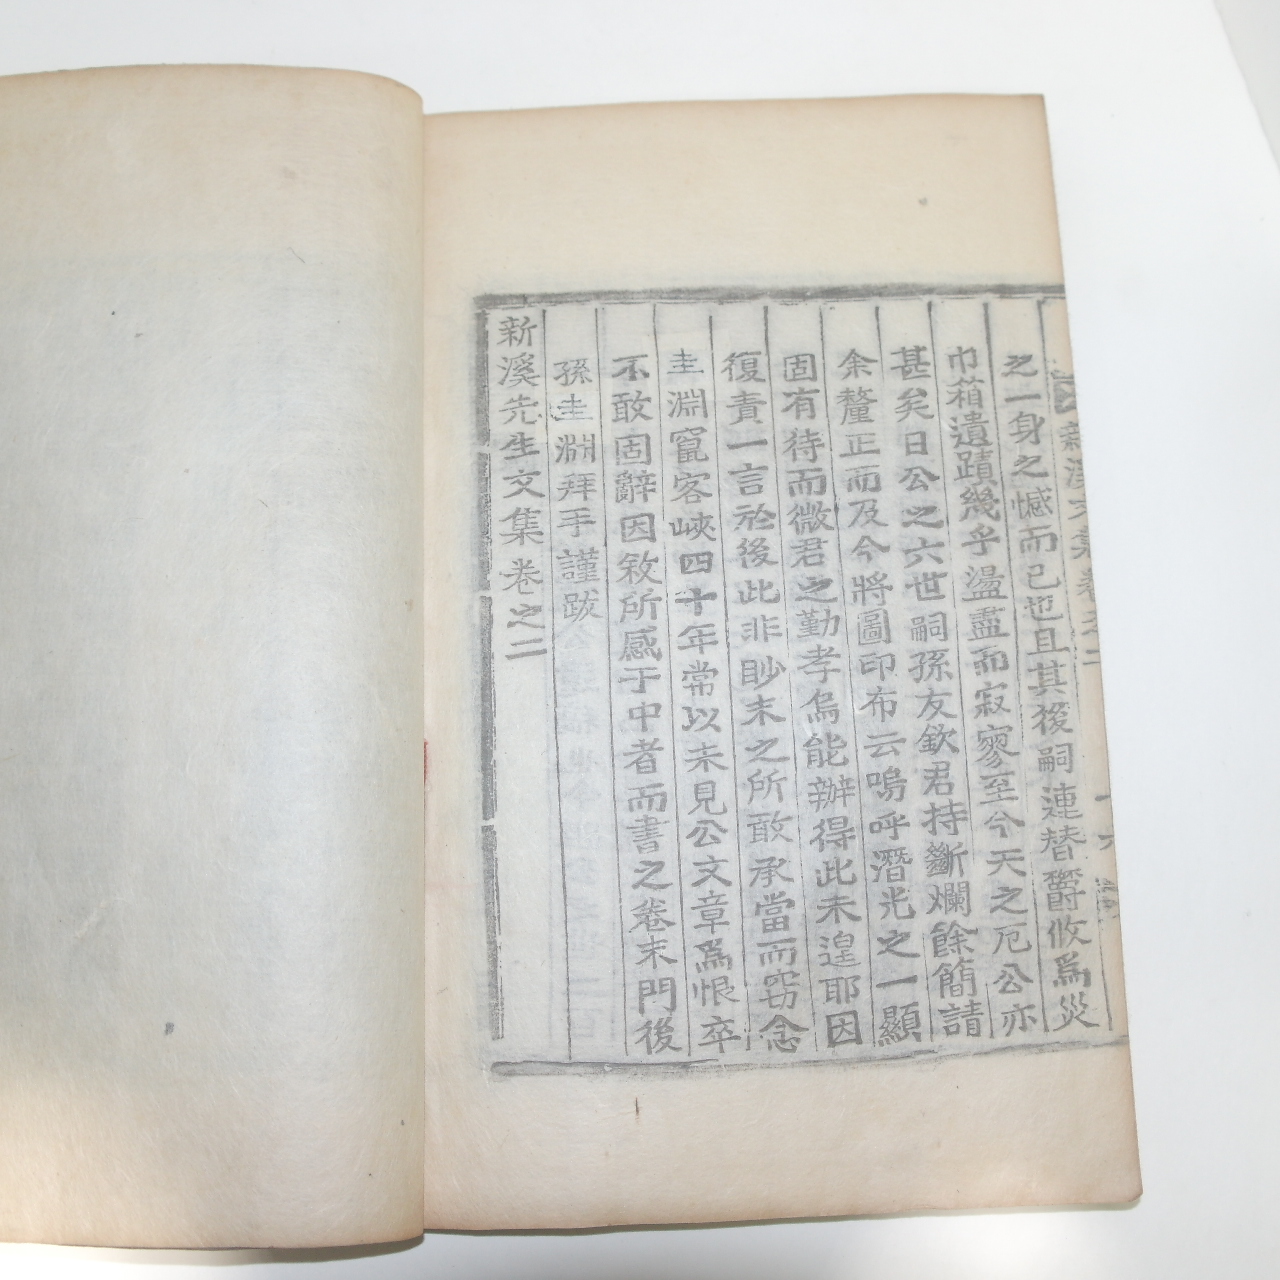 新溪文集卷之二
十六
之一身之憾而已也且其後嗣連替欝攸爲災
巾箱遺蹟幾乎盪盡而寂寥至今天之厄公亦
甚矣日公之六世嗣孫友欽君持斷爛餘簡請
余釐正而及今將圖印布云嗚呼潛光之一顯
固有待而微君之勤孝烏能辦得此未遑耶因
復責一言於後此非眇末之所敢承當而窃念
圭淵竄客峽四十年常以未見公文章爲恨卒
不敢固辭因敘所感于中者而書之卷末門後
孫圭淵拜手謹跋
新溪先生文集卷之二